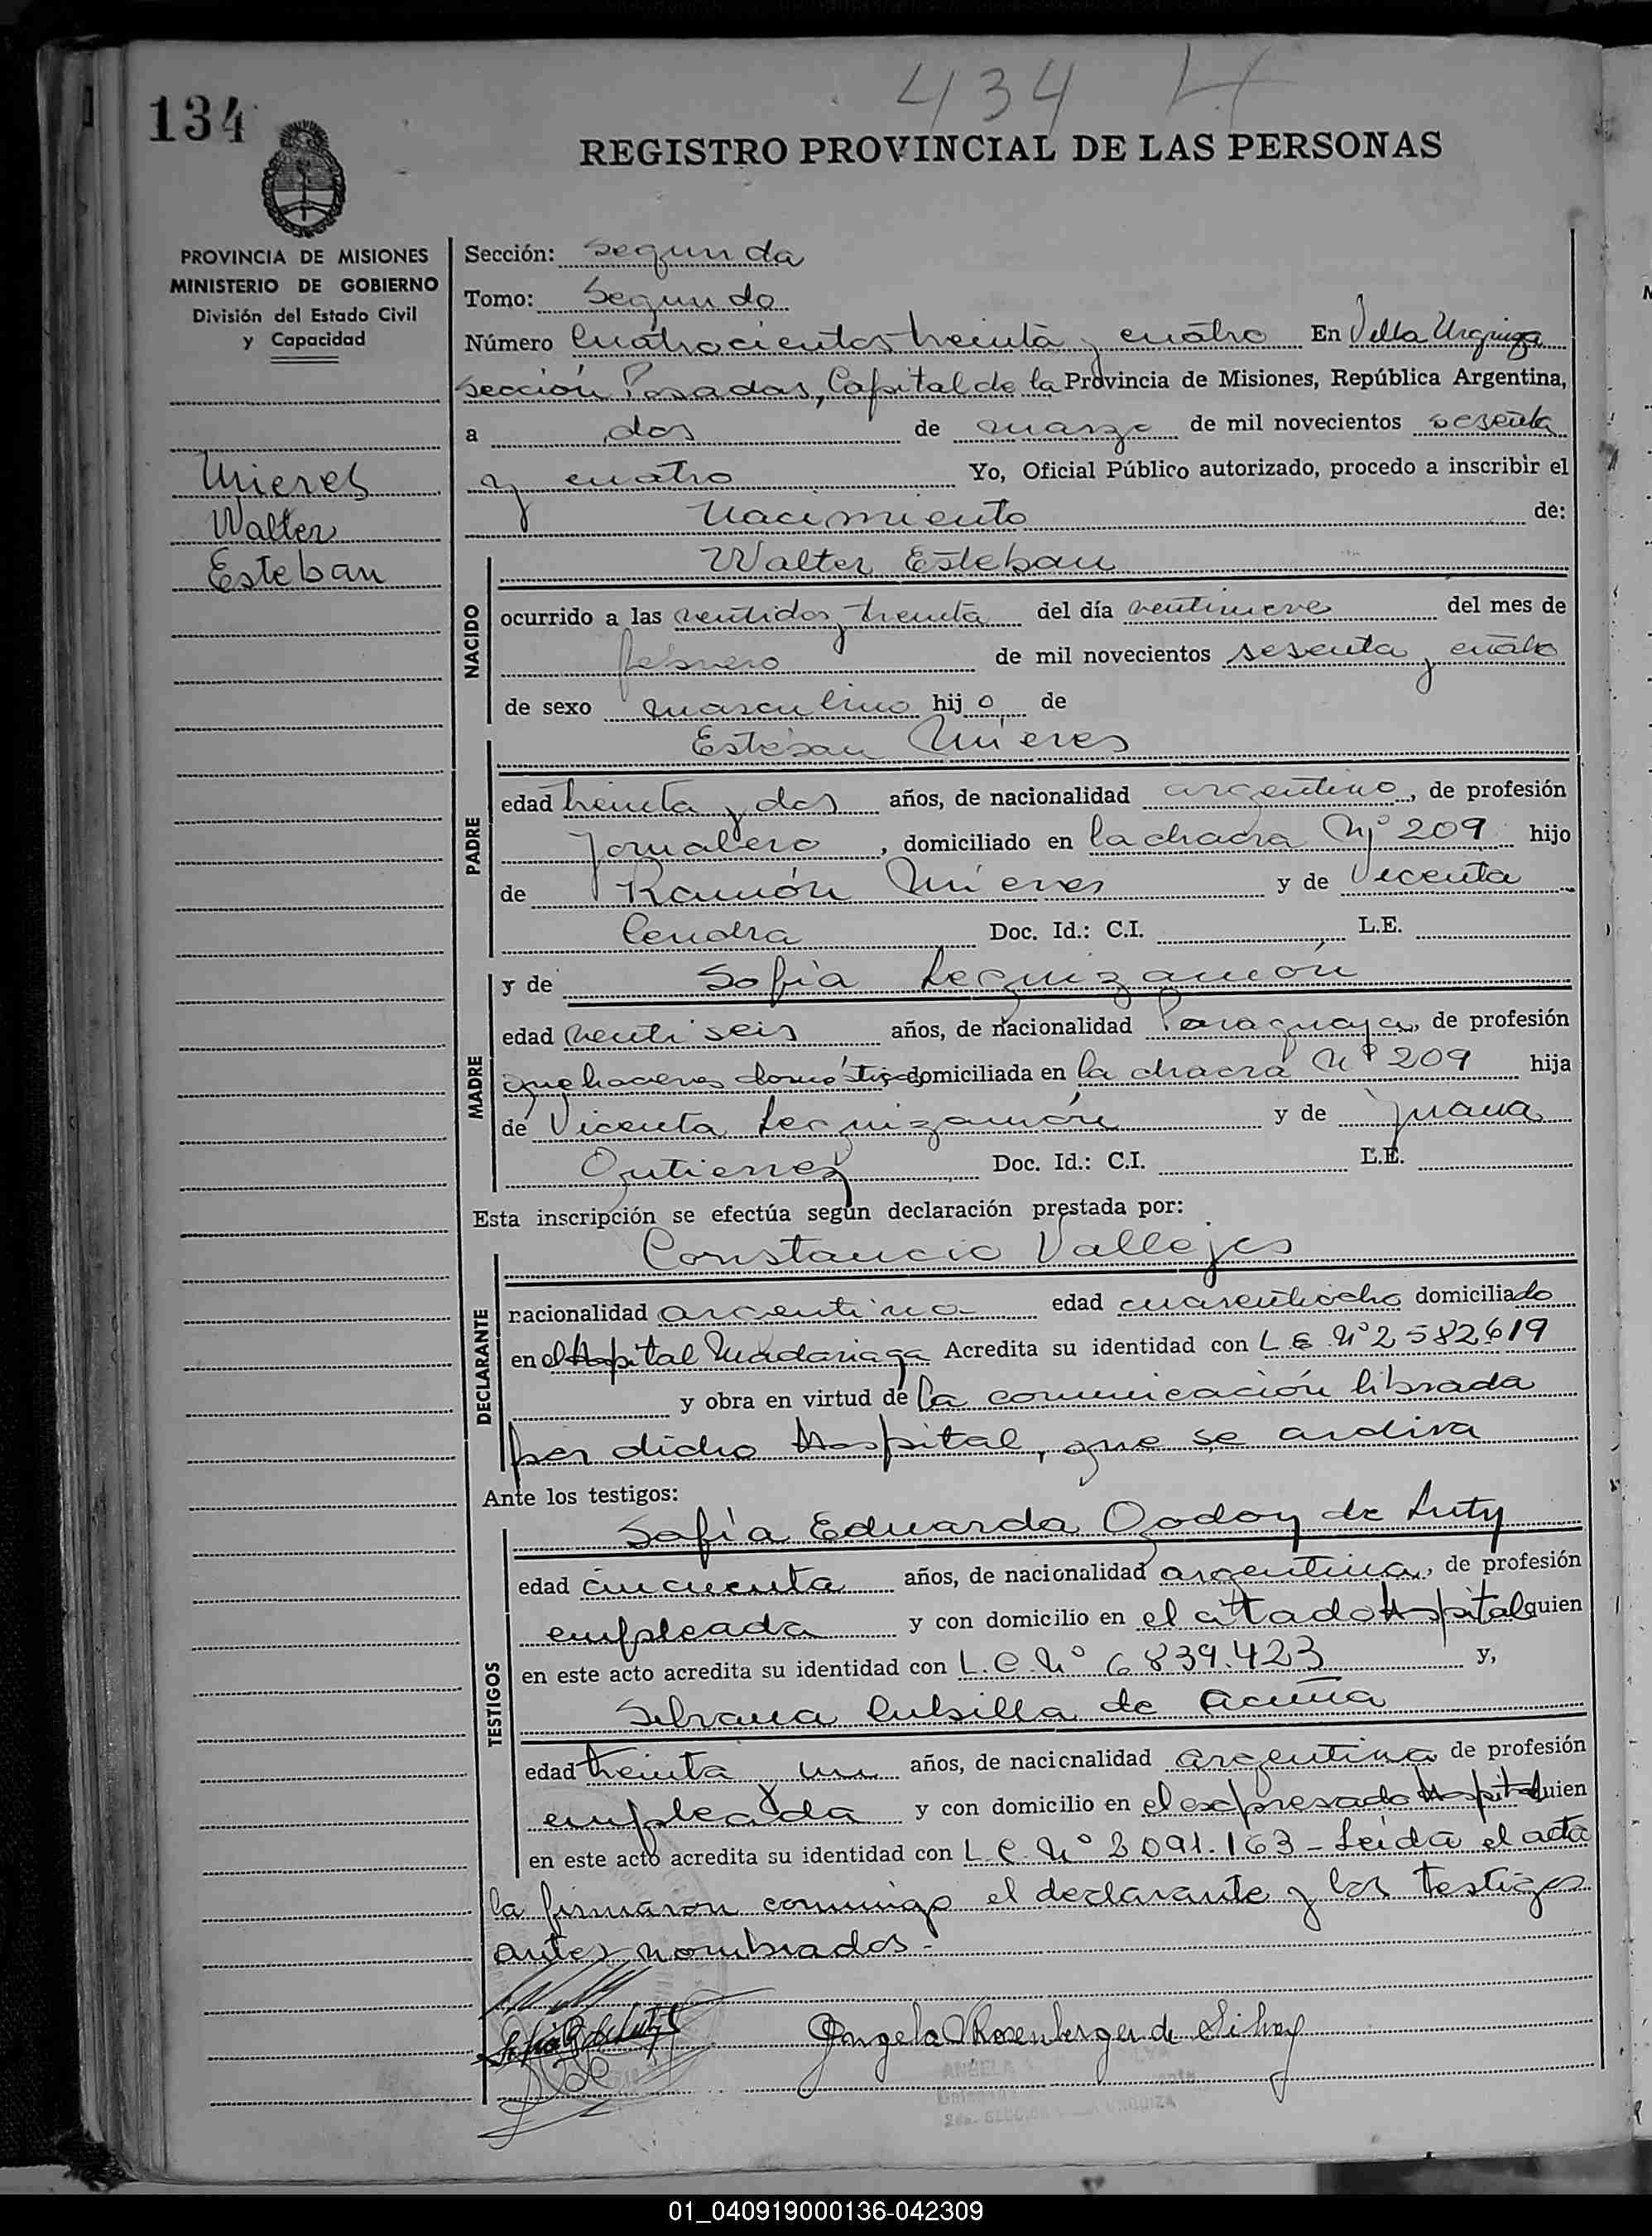 134
434
REGISTRO PROVINCIAL DE LAS PERSONAS
PROVINCIA DE MISIONES
MINISTERIO DE GOBIERNO
División del Estado Civil
y Capacidad
Mieres
Walter
Esteban
Sección: Segunda
Tomo: Segundo
Número Cuatrocientos treinta y cuatro En Villa Urquiza
Sección Posadas, Capital de la Provincia de Misiones, República Argentina,
a dos de marzo de mil novecientos sesenta
y cuatro Yo, Oficial Público autorizado, procedo a inscribir el
Nacimiento de:
NACIDO
Walter Esteban
ocurrido a las ventidos y treinta del día ventinueve del mes de
febrero de mil novecientos sesenta y cuatro
de sexo masculino hijo de
PADRE
Esteban Mieres
edad treinta y dos años, de nacionalidad argentino, de profesión
Jornalero, domiciliado en la chacra Nº 209 hijo
de Ramón Mieres y de Vicenta
Doc. Id.: C.I. L.E.
MADRE
y de Sofía Leguizamón
edad venti seis años, de nacionalidad Paraguaya, de profesión
quehaceres domésticos domiciliada en la chacra Nº 209 hija
de Vicenta Leguizamón y de Juana
Gutierrez Doc. Id.: C.I. L.E.
Esta inscripción se efectúa según declaración prestada por:
DECLARANTE
Constancio Vallejos
racionalidad argentino edad cuarentiocho domiciliado
en el Hospital Madariaga Acredita su identidad con L E Nº 2582619
y obra en virtud de la comunicación librada
por dicho Hospital, que se archiva
Ante los testigos:
TESTIGOS
Sofía Eduarda Godoy de Luty
edad cincuenta años, de nacionalidad argentina, de profesión
empleada y con domicilio en el citado Hospital quien
en este acto acredita su identidad con L.C. Nº 6839.423 y,
Silvana Cubilla de Acuña
edad treinta y un años, de nacicnalidad argentina de profesión
empleada y con domicilio en el expresado Hospital quien
en este acto acredita su identidad con L.C. Nº 3091.163 - Leida el acta
la firmaron conmigo el declarante y los testigos
antes nombrados.-
Angela Rosenberger de Silvay
01_040919000136-042309